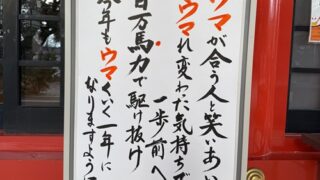 ウマが合う人と笑いあい
ウマれ変わた気持ちで
一歩前へ
百万馬力で駆け抜け
今年もウマくいく一年に
なりますように